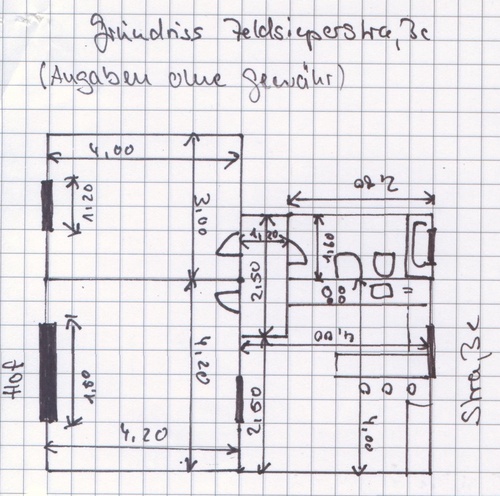 Grundriss Feldsieperstraße
(Angaben ohne gewähr)
4,00
1,20
3,00
2,80
1,20
1,60
2,50
4,00
4,20
1,80
Hof
Straße
4,20
2,60
4,00